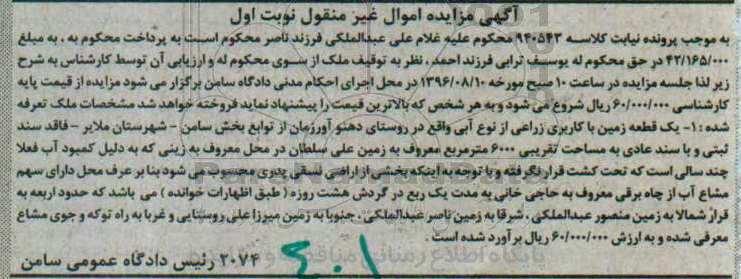 آگهی مزایده اموال غیر منقول نوبت اول
به موجب پرونده نیابت کلاسه ۹۴۰۵۴۳ محکوم علیه غلام علی عبدالملکی فرزند ناصر محکوم است به پرداخت محکوم به ، به مبلغ
۴۲/۱۶۵/۰۰۰ در حق محکوم له یوسف ترابی فرزند احمد ، نظر به توقیف ملک از سوی محکوم له و ارزیابی آن توسط کارشناس به شرح
زیر لذا جلسه مزایده در ساعت ۱۰ صبح مورخه ۱۳۹۶/۰۸/۱۰ در محل اجرای احکام مدنی دادگاه سامن برگزار می شود مزایده از قیمت پایه
کارشناسی ۶۰/۰۰۰/۰۰۰ ریال شروع می شود و به هر شخص که بالاترین قیمت را پیشنهاد نماید فروخته خواهد شد مشخصات ملک تعرفه
شده : ۱- یک قطعه زمین با کاربری زراعی از نوع آبی واقع در روستای دهنو آورزمان از توابع بخش سامن - شهرستان ملایر - فاقد سند
ثبتی و با سند عادی به مساحت تقریبی ۶۰۰۰ مترمربع معروف به زمین علی سلطان در محل معروف به زینی که به دلیل کمبود آب فعلا
چند سالی است که تحت کشت قرار نگرفته و با توجه به اینکه بخشی از اراضی نسقی پدری محسوب می شود بنا بر عرف محل دارای سهم
مشاع آب از چاه برقی معروف به حاجی خانی به مدت یک ربع در گردش هشت روزه ( طبق اظهارات خوانده ) می باشد که حدود اربعه به
قرار شمالا به زمین منصور عبدالملکی ، شرقا به زمین ناصر عبدالملکی ، جنوبا به زمین میرزا علی روستایی و غربا به راه توکه و جوی مشاع
معرفی شده و به ارزش ۶۰/۰۰۰/۰۰۰ ریال برآورد شده است .
۲۰۷۴ رئیس دادگاه عمومی سامن
۴۰۱